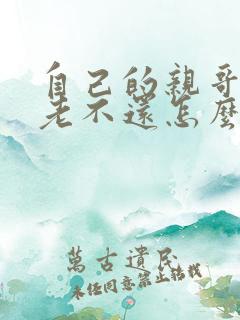 自己的親哥
老不還怎麼
萬古遺民
未經同意禁止轉載